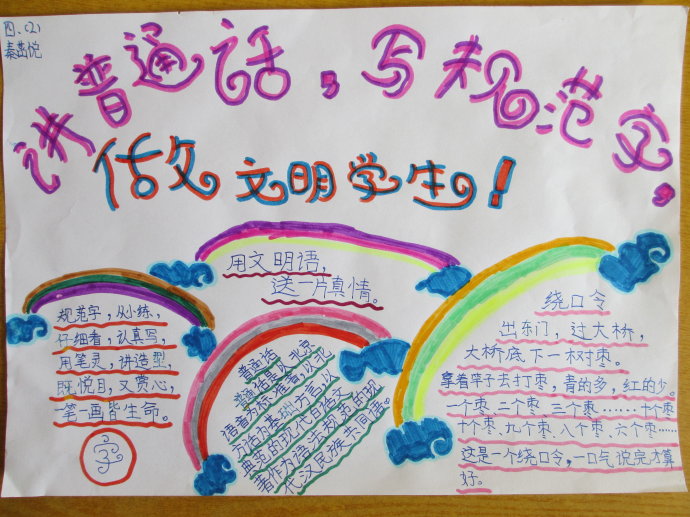 四、(2)
秦茜悦
讲普通话，写规范字，
做文明学生！
用文明语，
送一片真情。
规范字，从小练，
仔细看，认真写，
用笔灵，讲造型，
既悦目，又赏心，
一笔一画皆生命。
字
普通话
普通话是以北京
语音为标准音，以北
方话为基础方言，以
典范的现代白话文
著作为语法规范的现
代汉民族共同语。
绕口令
出东门，过大桥，
大桥底下一树枣。
拿着竿子去打枣，青的多，红的少。
一个枣、二个枣、三个枣……十个枣
十个枣、九个枣、八个枣、六个枣……
这是一个绕口令，一口气说完才算
好。